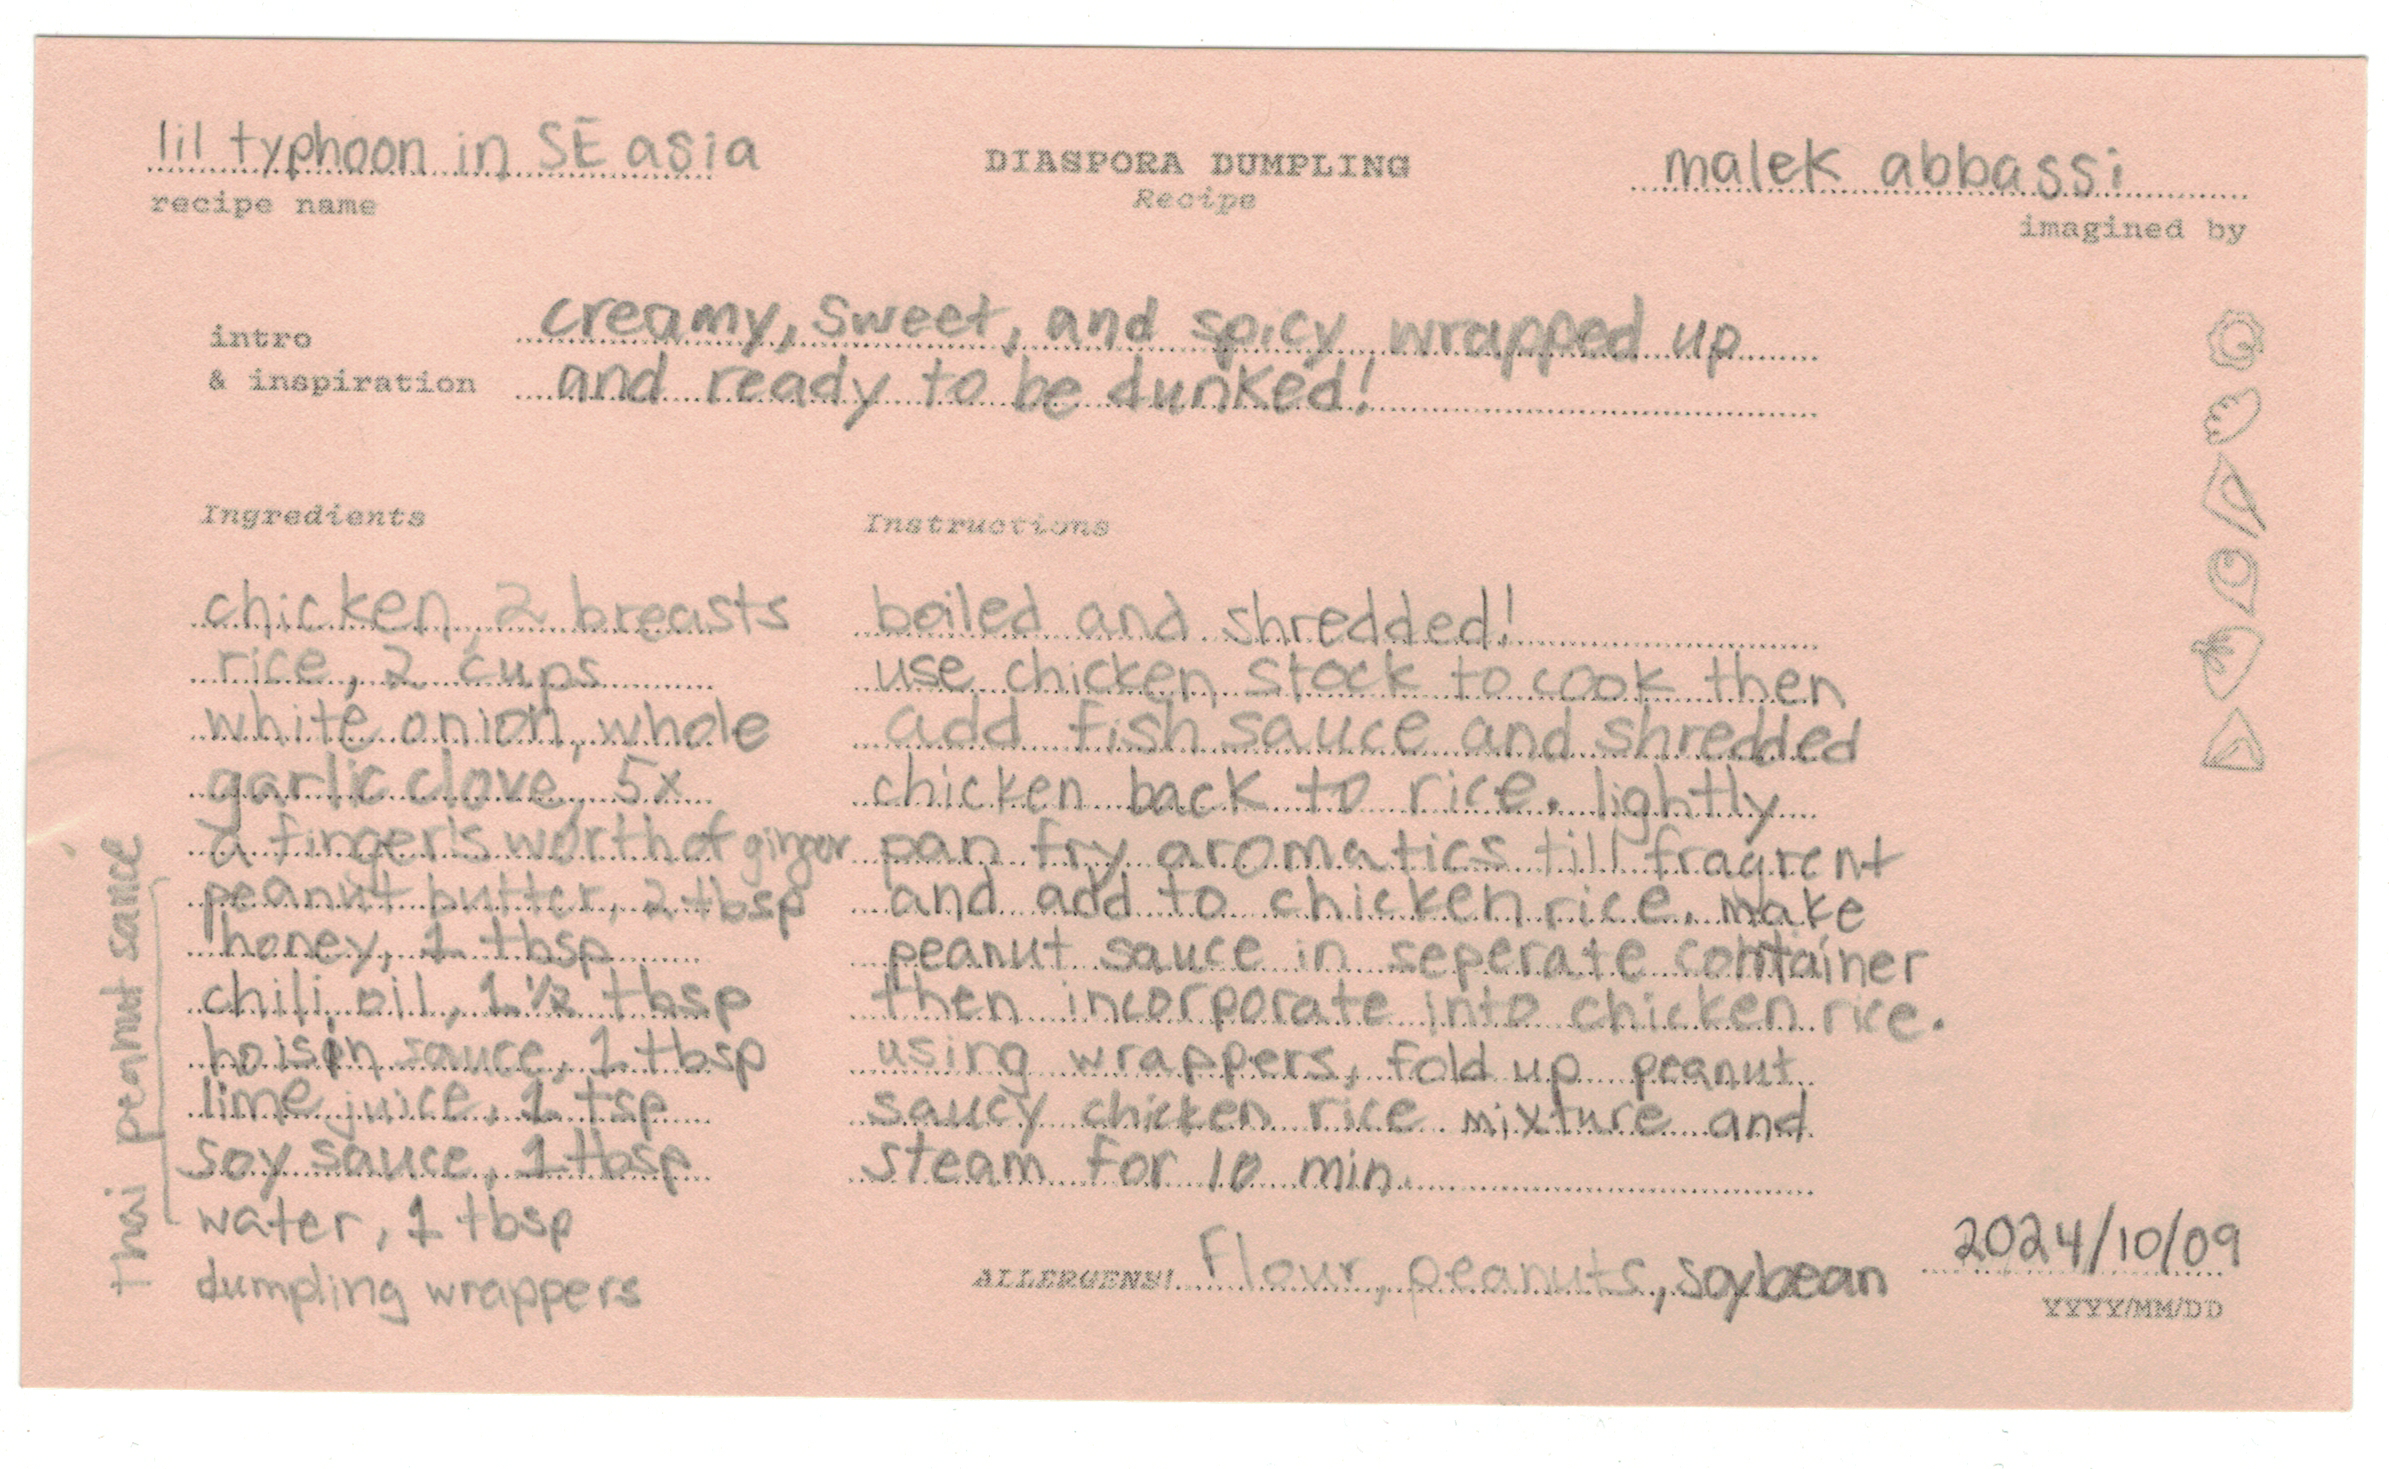 lil typhoon in SE asia
recipe name
DIASPORA DUMPLING
Recipe
malek abbassi
imagined by
intro
& inspiration
creamy, sweet, and spicy wrapped up
and ready to be dunked!
Ingredients
chicken, 2 breasts
rice, 2 cups
white onion, whole
garlic clove, 5x
a finger's worth of ginger
peanut butter, 2 tbsp
honey, 1 tbsp
chili oil, 1 1/2 tbsp
hoisin sauce, 1 tbsp
lime juice, 1 tsp
soy sauce, 1 tbsp
water, 1 tbsp
dumpling wrappers
thai peanut sauce
Instructions
boiled and shredded!
use chicken stock to cook then
add fish sauce and shredded
chicken back to rice. lightly
pan fry aromatics till fragrent
and add to chicken rice. make
peanut sauce in seperate container
then incorporate into chicken rice.
using wrappers, fold up peanut
saucy chicken rice mixture and
steam for 10 min.
ALLERGENS! flour, peanuts, soybean
2024/10/09
YYYY/MM/DD